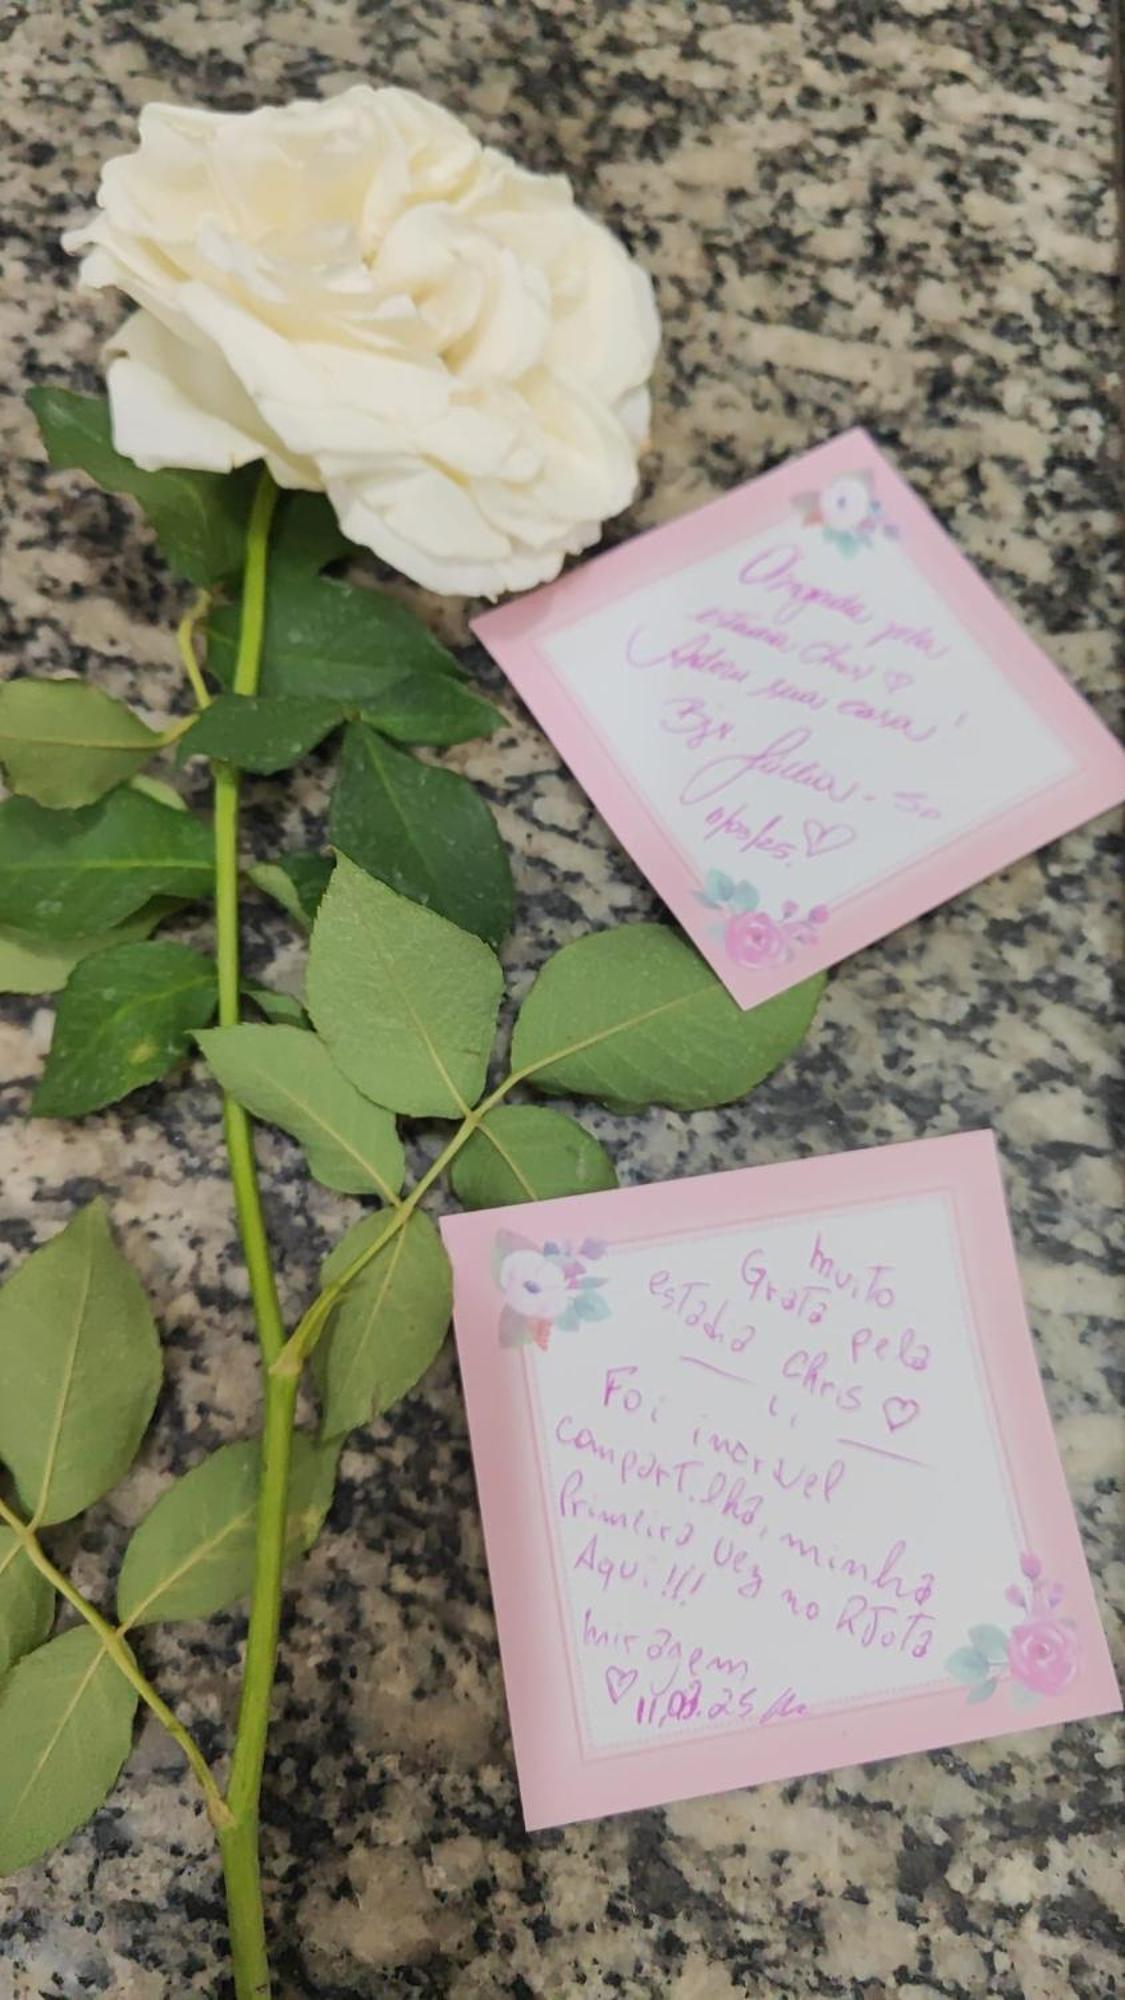 Obrigada pela
estadia Chris ♡
Adorei sua casa!
Bjs
11/03/25. ♡
Muito
Grata pela
estadia Chris ♡
Foi incrível
compartilha, minha
Primeira vez no RJ
Aqui!!!
Miragem
♡ 11.03.25